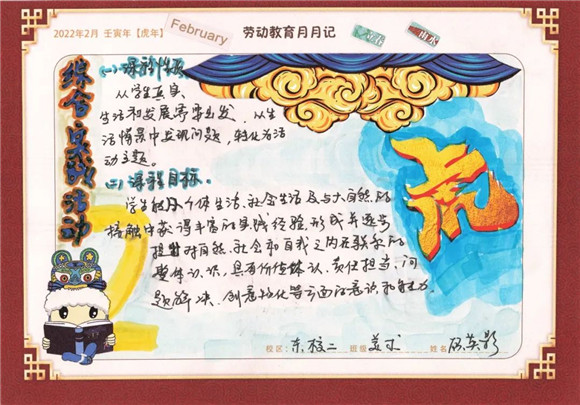 2022年2月 壬寅年【虎年】
February
劳动教育月月记
立春
雨水
综合实践活动
(一) 课程性质
从学生真实
生活和发展需要出发、从生
活情景中发现问题,转化为活
动主题。
(二) 课程目标.
学生 个体生活、社会生活及与大自然的
接触中获得丰富的实践经验,形成并逐步
提升对自然、社会和自我之内在联系的
整体认识,具有价值体认、责任担当、问
题解决、创意物化等方面的意识和能力.
虎
校区: 东校二 班级 美术 姓名 英影